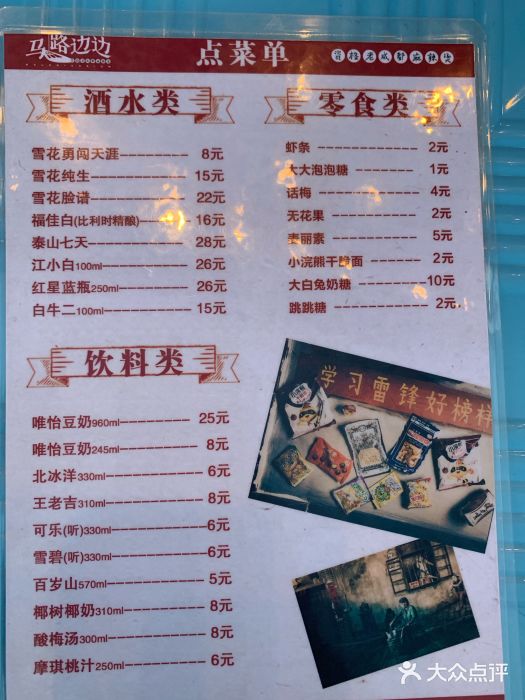 马路边边
点菜单
酒水类
雪花勇闯天涯--------8元
雪花纯生--------15元
雪花脸谱--------22元
福佳白(比利时精酿)--------16元
泰山七天--------28元
江小白100ml--------26元
红星蓝瓶250ml--------26元
白牛二100ml--------15元
零食类
虾条--------2元
大大泡泡糖--------1元
话梅--------4元
无花果--------2元
麦丽素--------5元
小浣熊干脆面--------2元
大白兔奶糖--------10元
跳跳糖--------2元
饮料类
唯怡豆奶960ml--------25元
唯怡豆奶245ml--------8元
北冰洋330ml--------6元
王老吉310ml--------8元
可乐(听)330ml--------6元
雪碧(听)330ml--------6元
百岁山570ml--------5元
椰树椰奶310ml--------8元
酸梅汤300ml--------8元
摩琪桃汁250ml--------6元
学习雷锋好榜样
大众点评